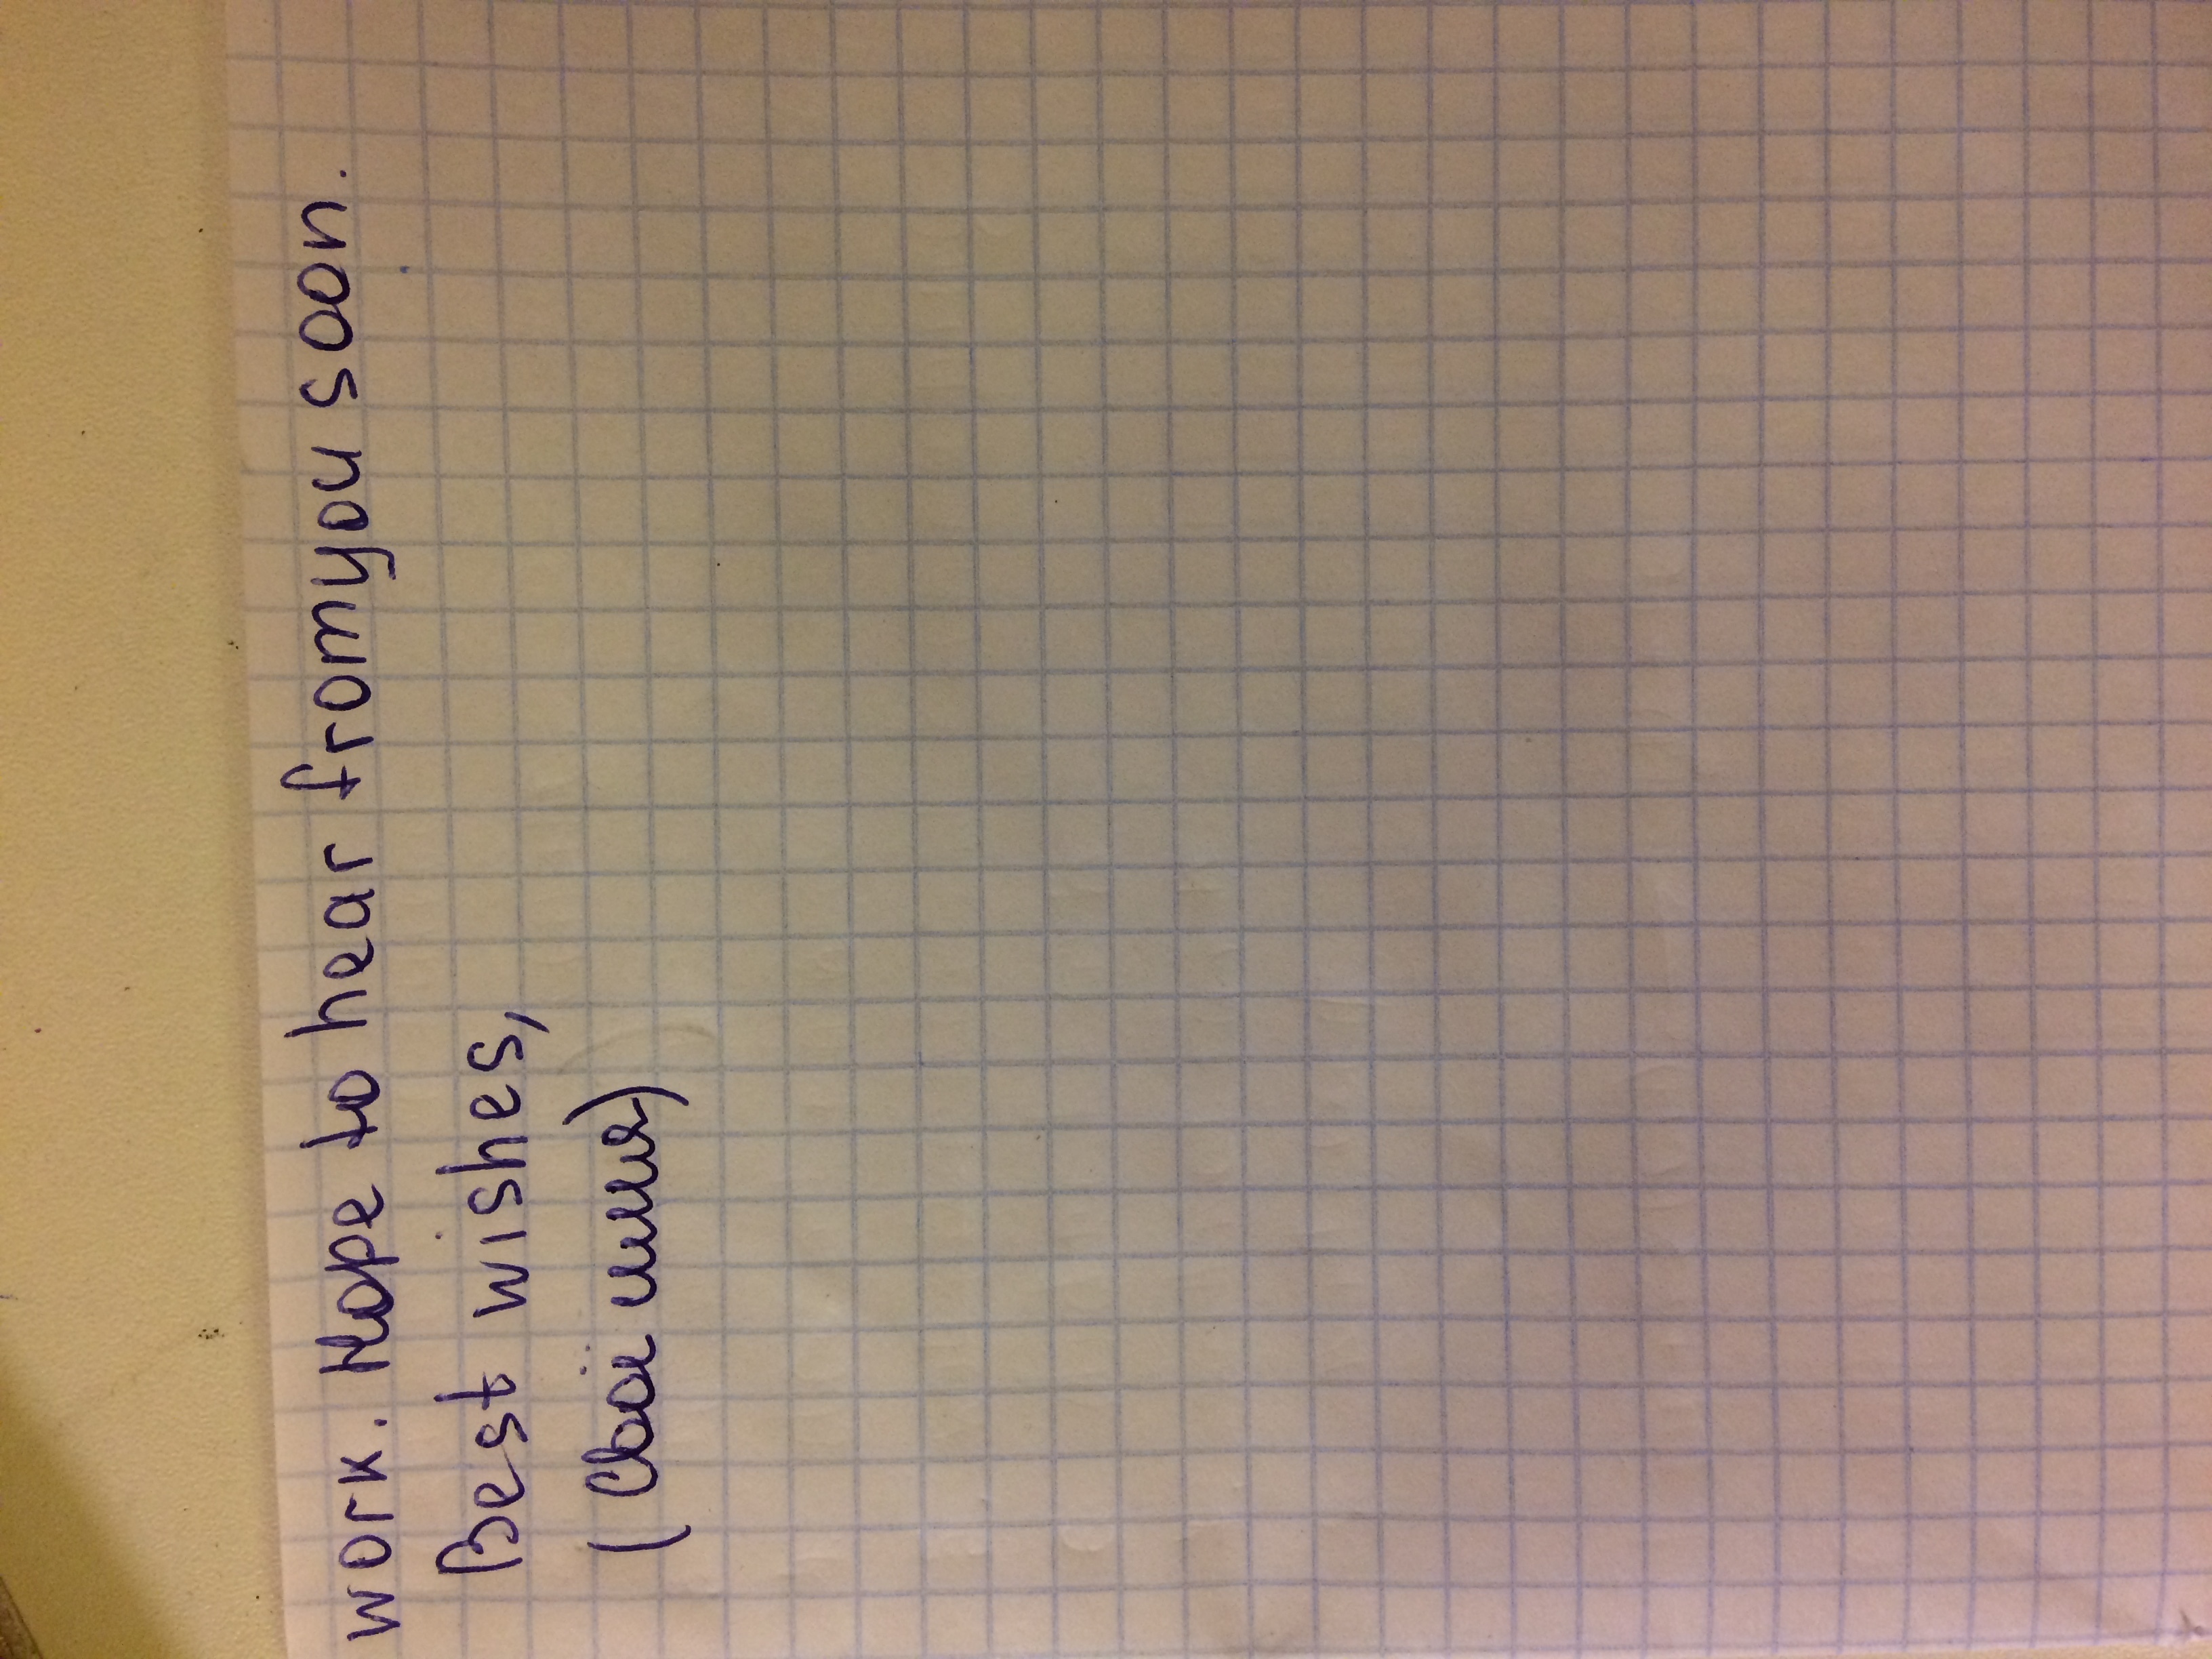 work. Hope to hear from you soon.
Best wishes,
(Своё имя)